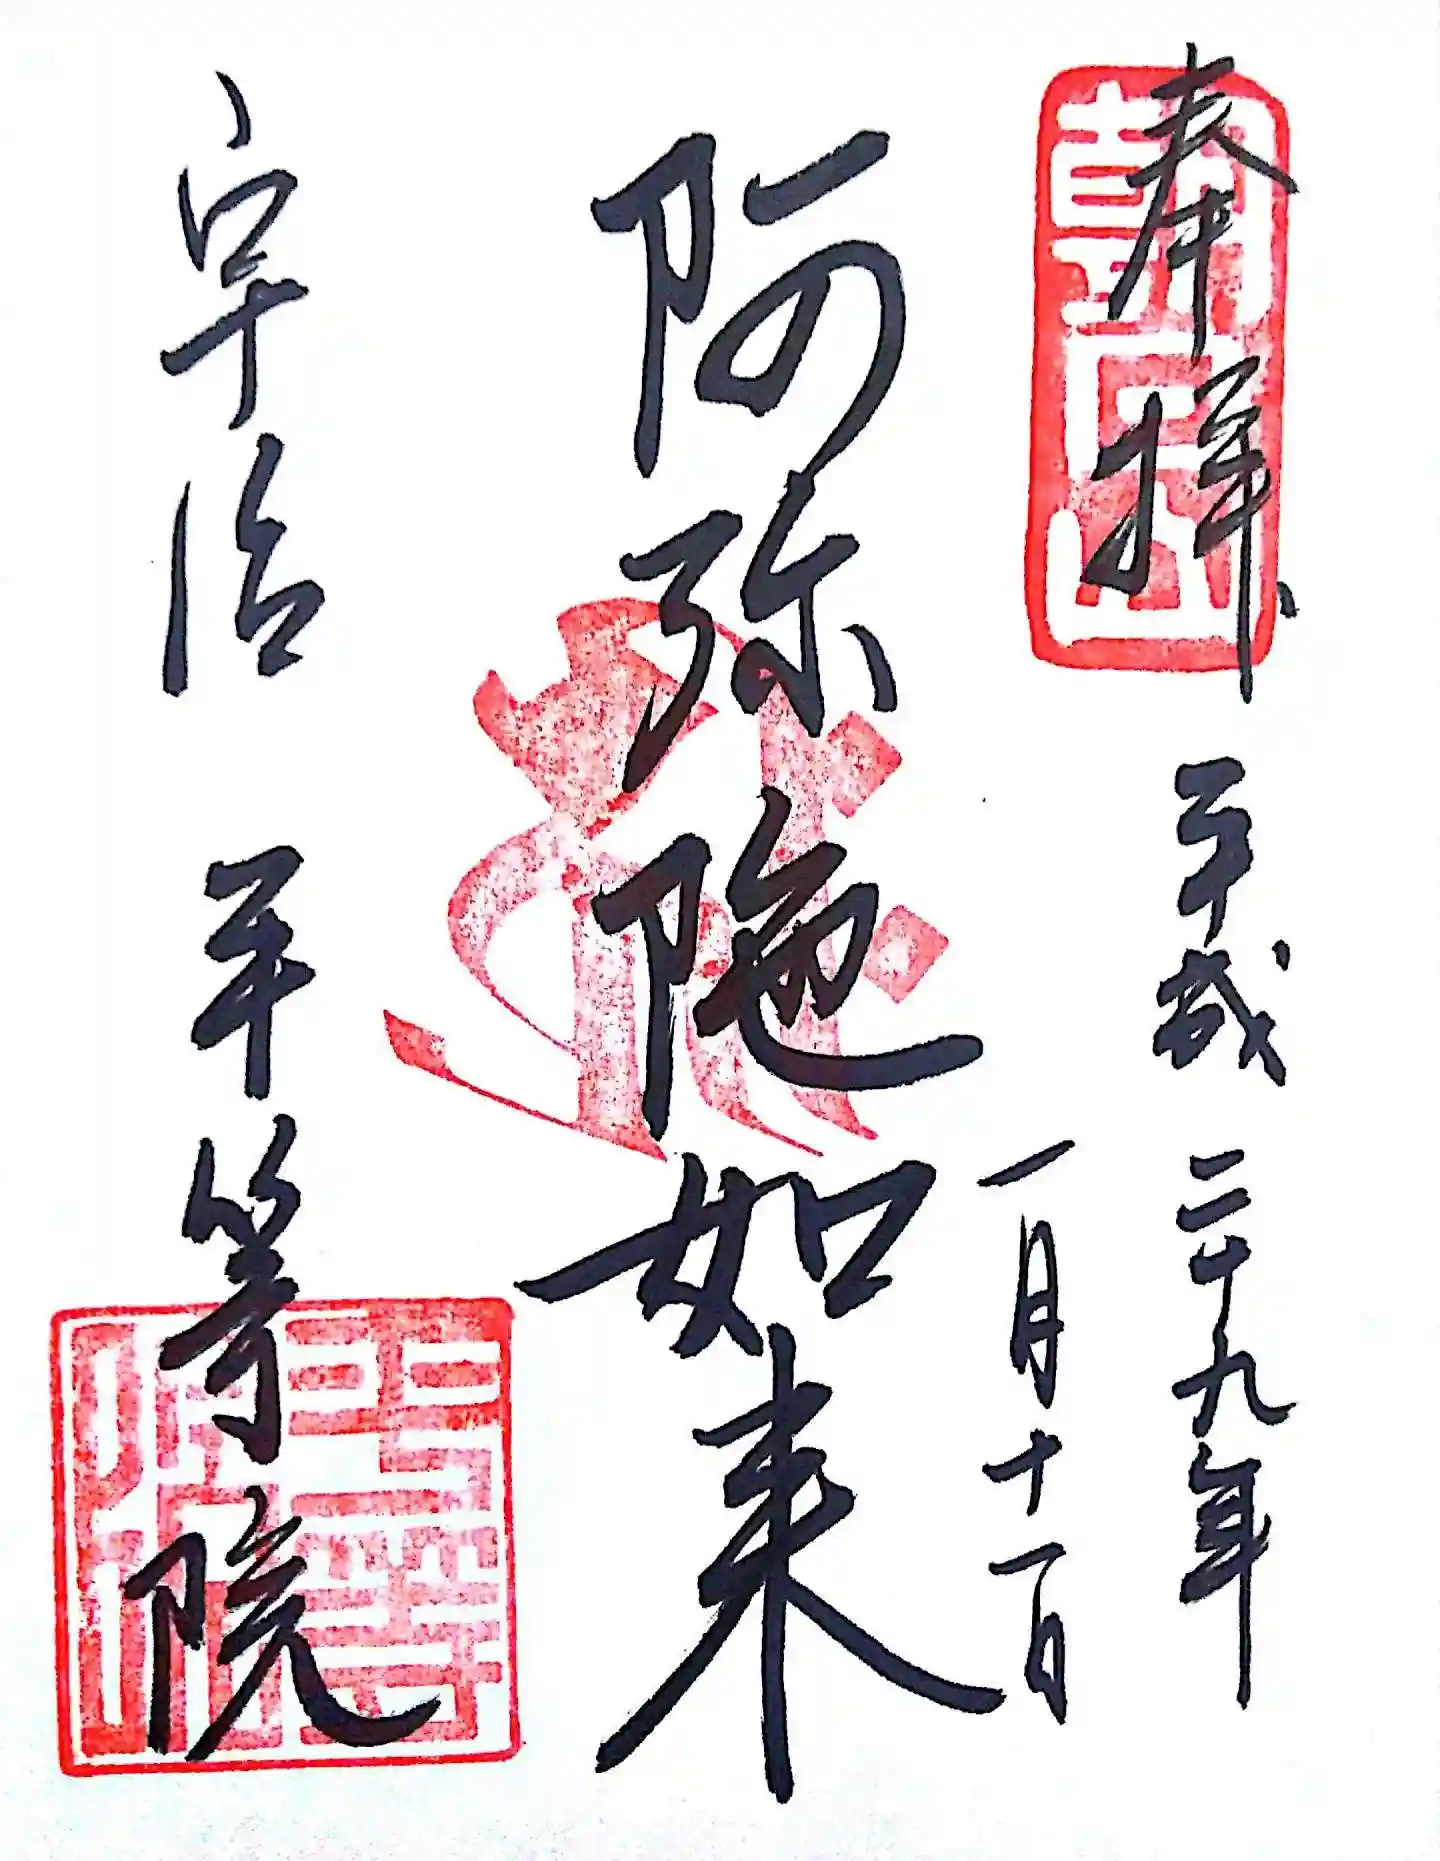 奉拝
平成二十九年
一月十一日
阿弥陀如来
宇治 平等院
朝日山
平等院印